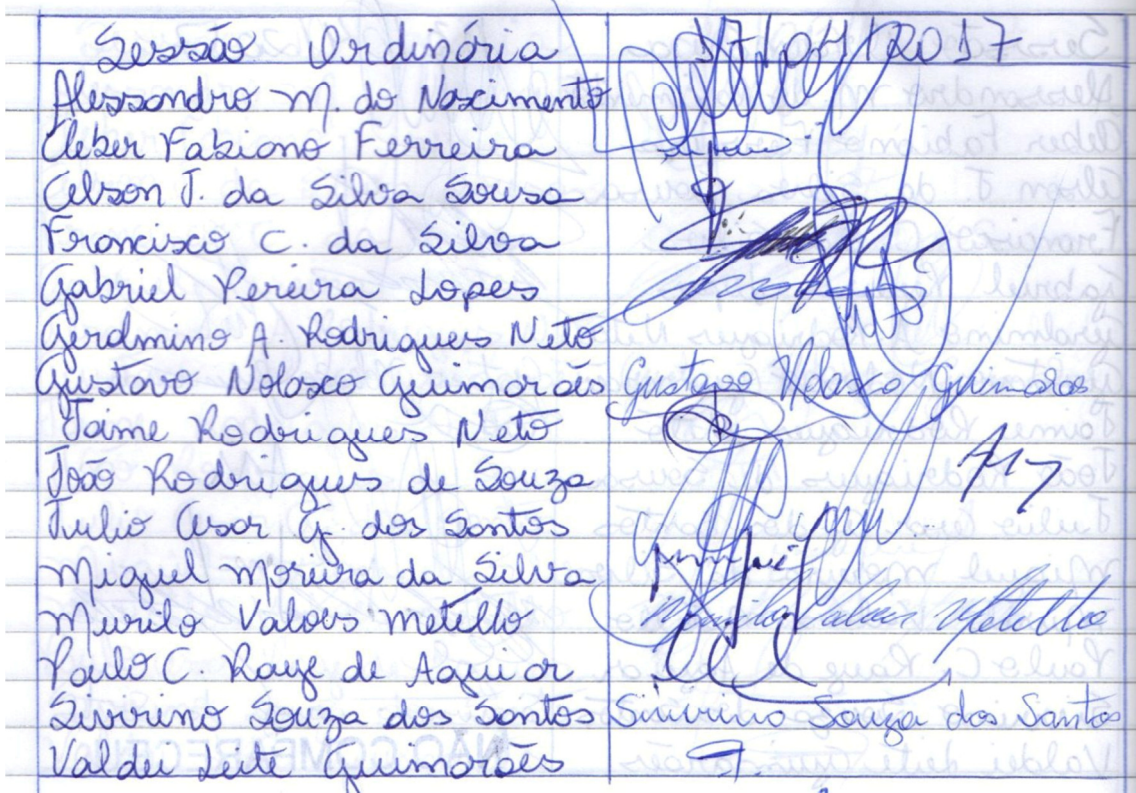 Sessão Ordinária 17/04/2017
Alessandro M. do Nascimento
Cleber Fabiano Ferreira
Celson J. da Silva Sousa
Francisco C. da Silva
Gabriel Pereira Lopes
Geralmino A. Rodrigues Neto
Gustavo Nolasco Guimarães Gustavo Nolasco Guimarães
Jaime Rodrigues Neto
João Rodrigues de Souza
Julio Cesar G. dos Santos
Miguel Moreira da Silva
Murilo Valoes Metello Murilo Valoes Metello
Paulo C. Raye de Aguiar
Sivirino Souza dos Santos Sivirino Souza dos Santos
Valdei Leite Guimarães